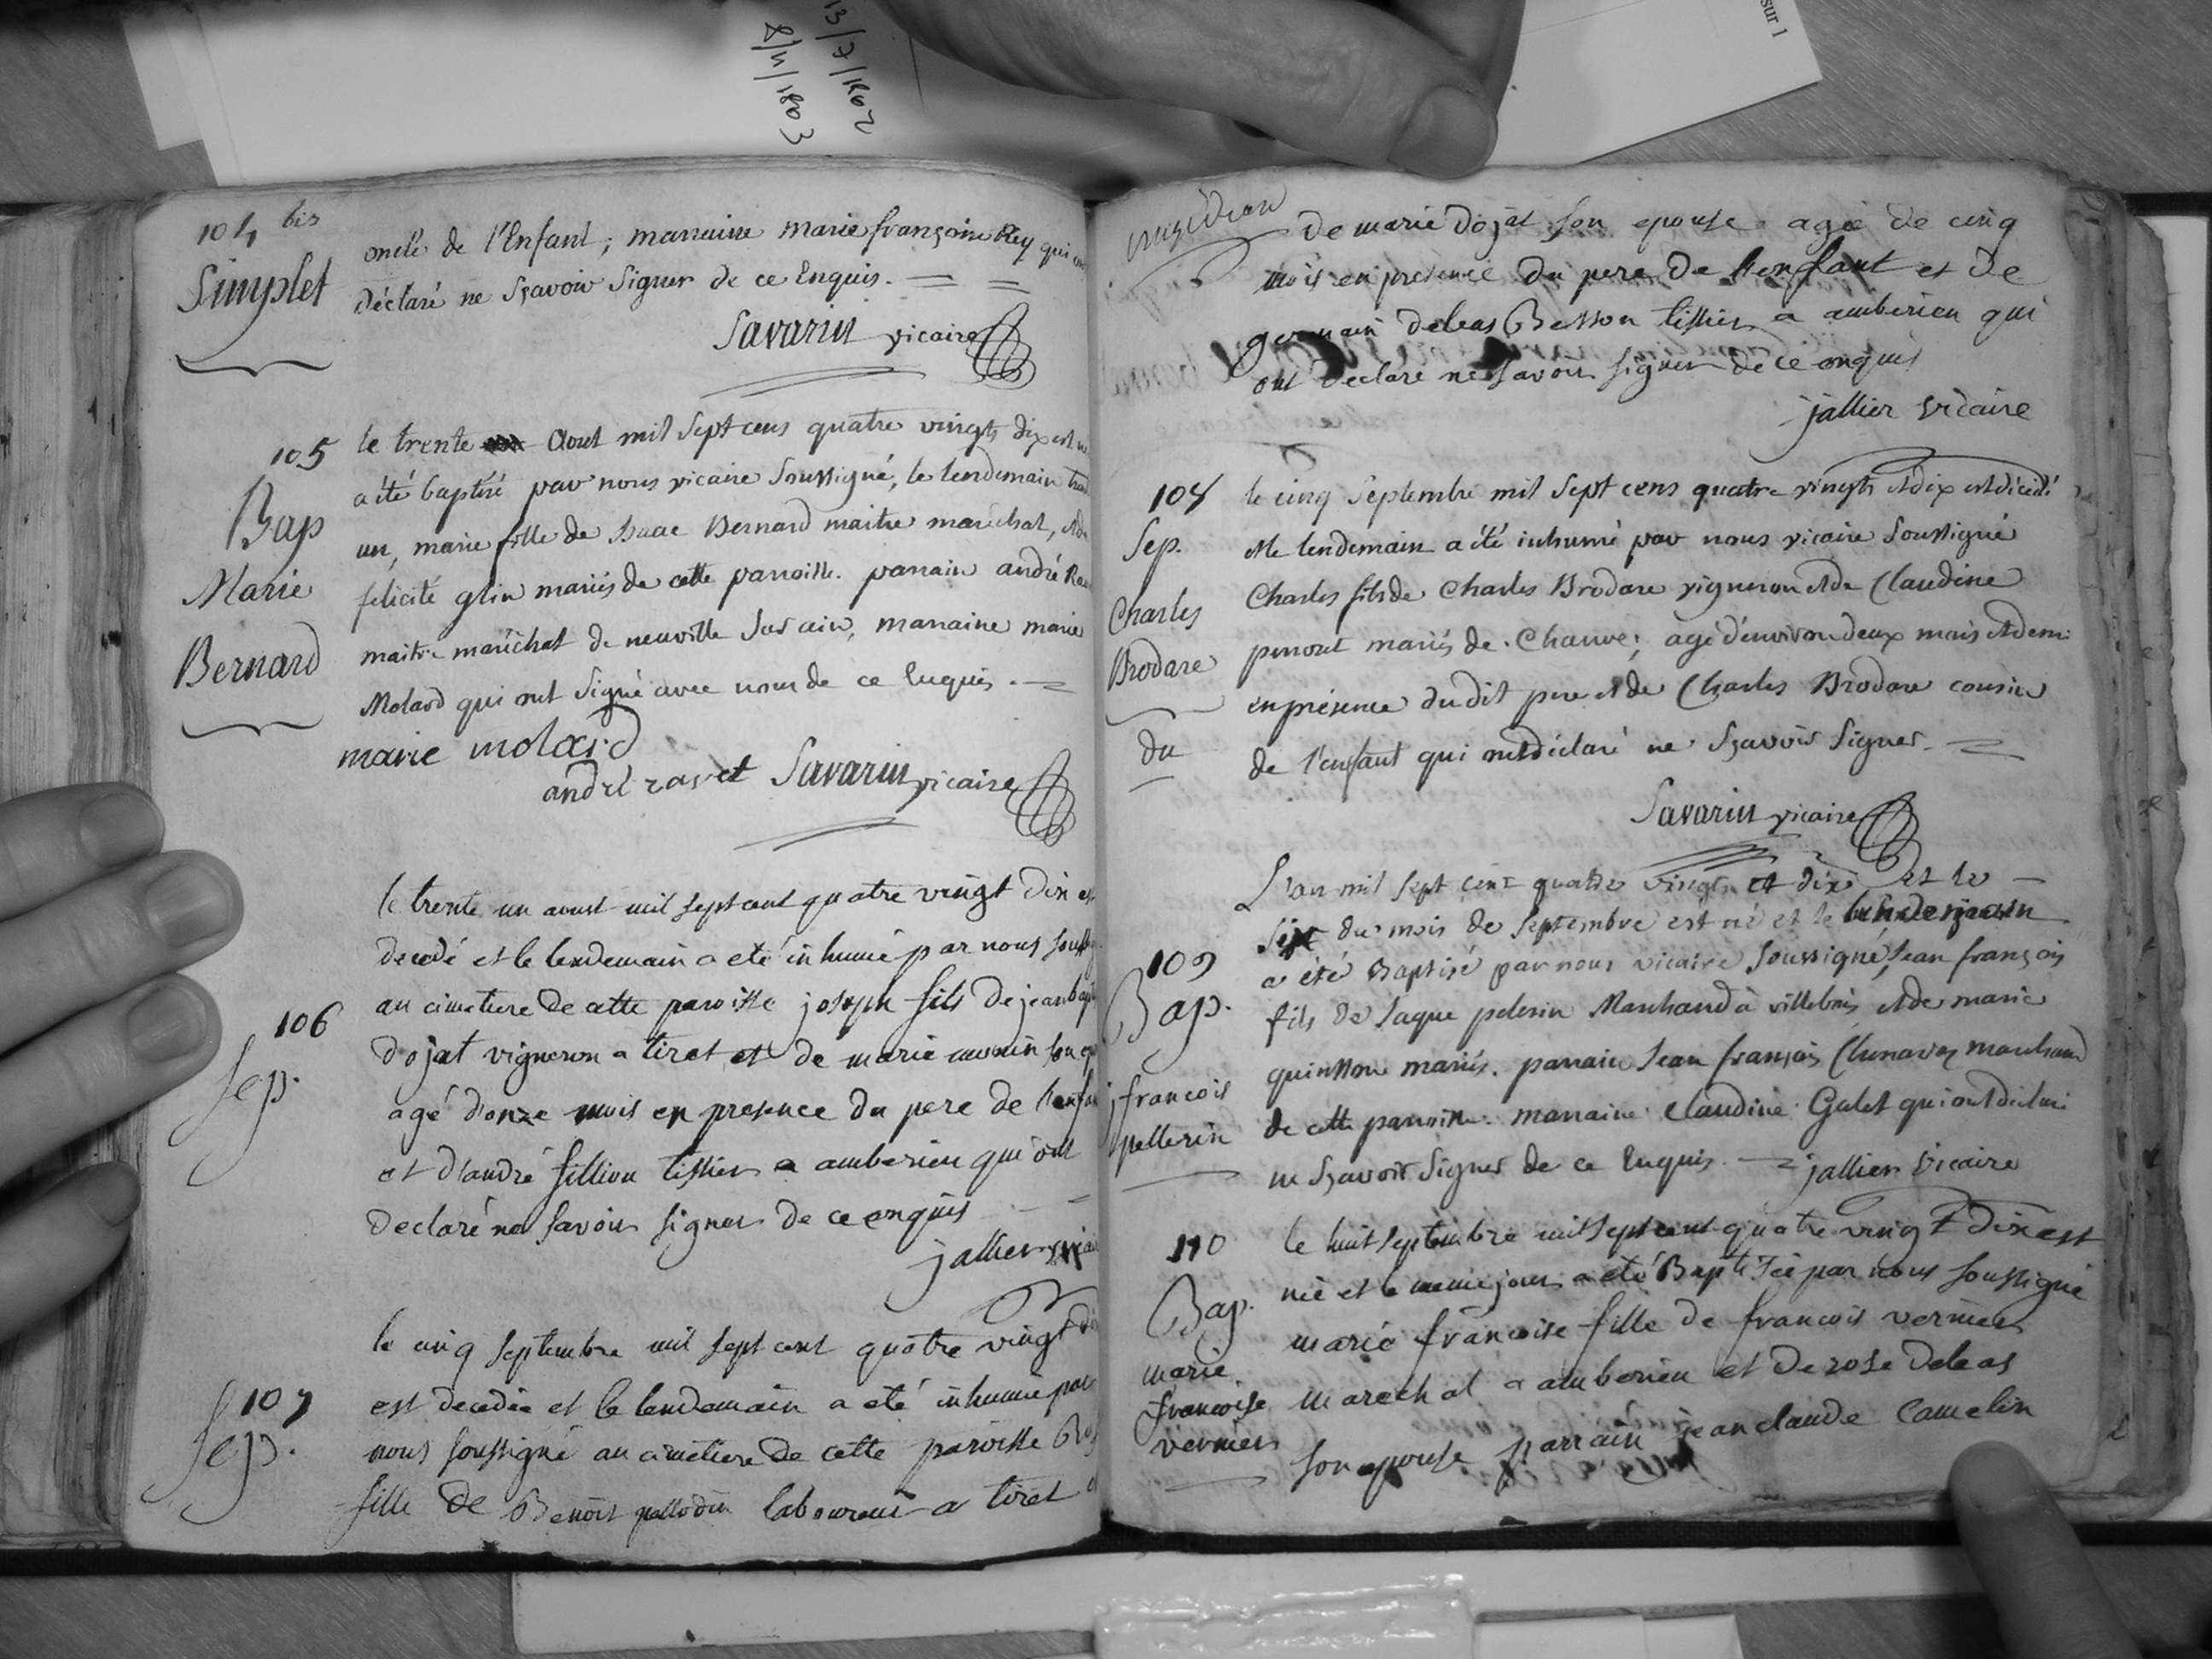 sur 1
13/7/1802
8/4/1803
104 bis
Simplet
oncle de l'Enfant, marraine marie françoise Rey qui
déclaré ne sçavoir Signer de ce Enquis.
Savarin vicaire
105
Bap
Marie
Bernard
le trente aout mil Sept cens quatre vingts dix est
a été baptisé par nous vicaire Soussigné, le lendemain
un, marie fille de Isaac Bernard maitre maréchal,
felicité glin mariés de cette parroisse. parrain andré
maitre maréchal de neuville sur ain, marraine marie
Molard qui ont Signé avec nous de ce Enquis.
marie molard
andré ravet Savarin vicaire
106
Sep.
le trente un aoust mil sept cent quatre vingt dix
decedé et le lendemain a eté inhumé par nous
au cimetiere de cette paroisse joseph fils de jean
dojat vigneron a tiret et de marie
agé d'onze mois en presence du pere de
et d'andré fillion tissier a amberieu qui ont
declaré ne savoir signer de ce enquis
jallier
107
Sep.
le cinq septembre mil sept cent quatre vingt
est decedée et le lendemain a été inhumée par
nous soussigné au cimetiere de cette paroisse
fille de Benoit laboureur a tiret
de marie dojat son epouse agée de cinq
mois en presence du pere de l'enfant et de
germain deleas Besson tissier a amberieu qui
ont declaré ne savoir signer de ce enquis
jallier vicaire
108
Sep.
Charles
Brodare
du
le cinq Septembre mil Sept cens quatre vingts et dix est décédé
et le lendemain a été inhumé par nous vicaire Soussigné
Charles fils de Charles Brodare vigneron et de Claudine
mariés de Chauve; agé d'environ deux mois et demi
en présence du dit pere et de Charles Brodare cousin
de l'enfant qui ont déclaré ne Sçavoir Signer.
Savarin vicaire
109
Bap.
j françois
pellerin
L'an mil sept cent quatre vingts et dix et le
six du mois de Septembre est né et le lendemain
a été Baptisé par nous vicaire Soussigné, Jean françois
fils de Jaque pelerin Marchand à villebois et de marie
quinson mariés. parrain Jean françois marchand
de cette parroisse. marraine Claudine Galet qui ont déclaré
ne Sçavoir Signer de ce Enquis. jallier vicaire
110
Bap.
marie
francoise
vernier
le huit septembre mil sept cent quatre vingt dix est
née et le meme jour a eté Baptisée par nous soussigné
marie francoise fille de francois vernier
marechal a amberieu et de rose deleas
son epouse parrain jean claude Camelin